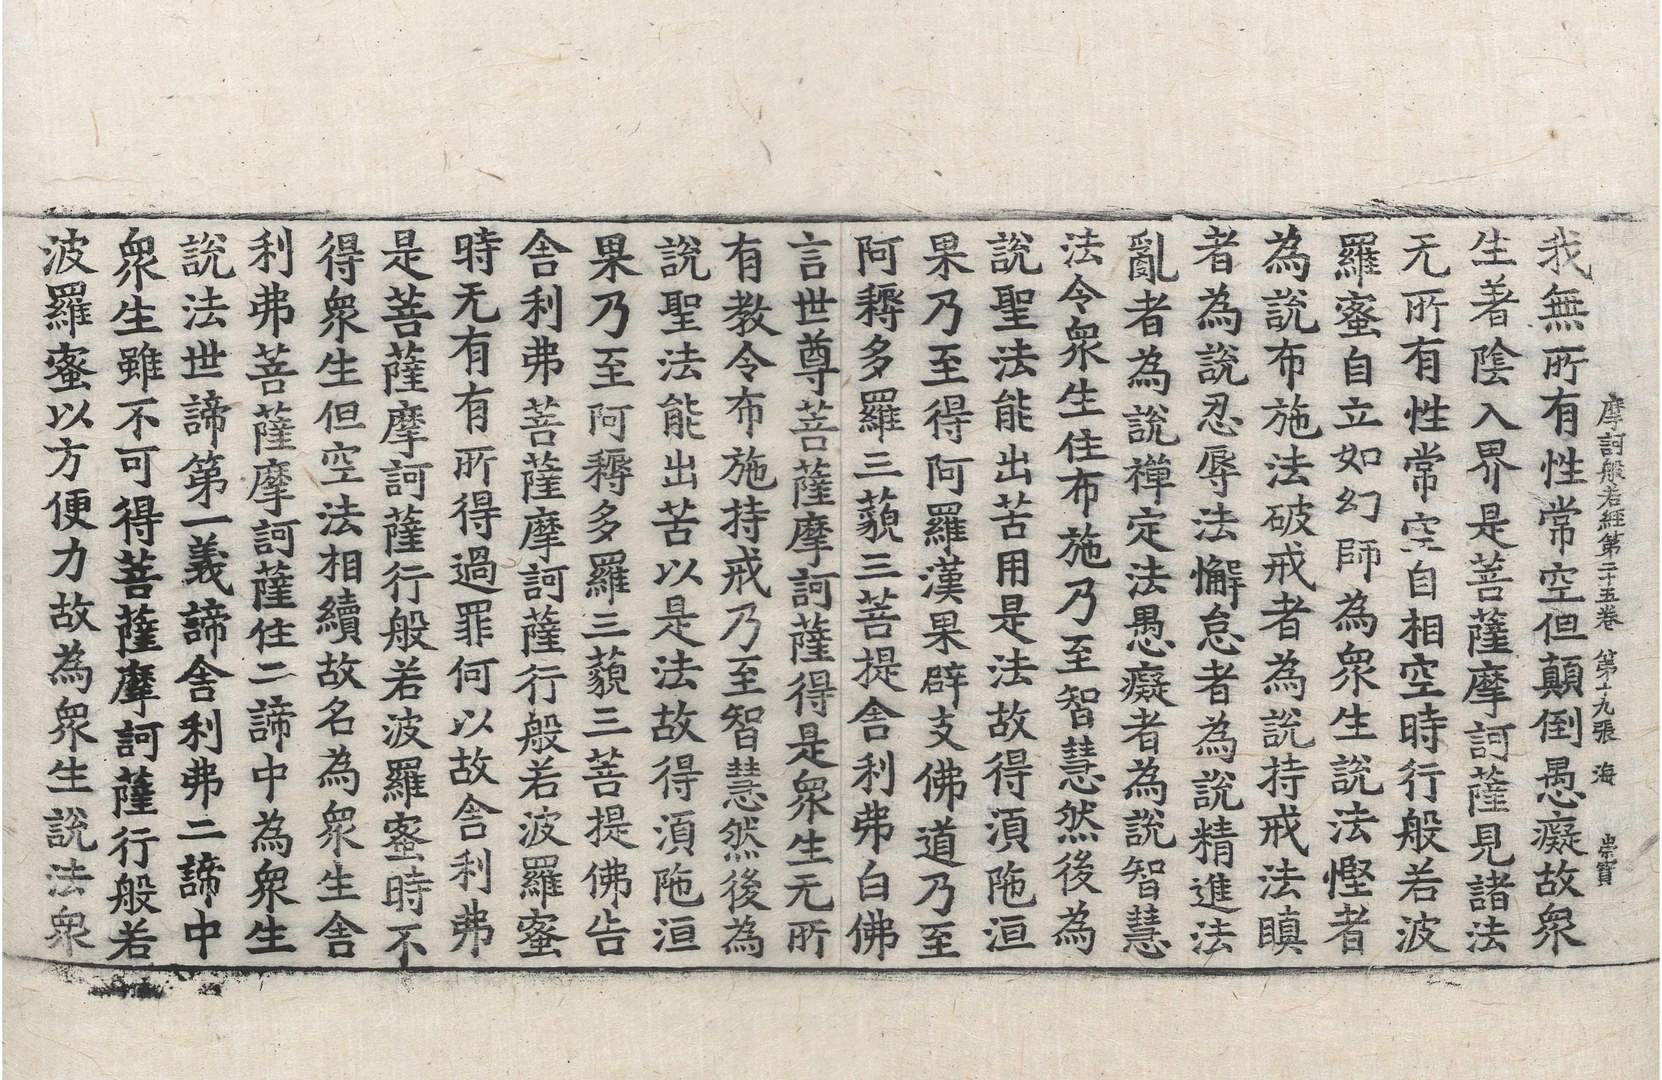 摩訶般若經第二十五卷 第十九張 海 崇寶
我無所有性常空但顛倒愚癡故衆
生著陰入界是菩薩摩訶薩見諸法
无所有性常空自相空時行般若波
羅蜜自立如幻師為衆生說法慳者
為說布施法破戒者為說持戒法瞋
者為說忍辱法懈怠者為說精進法
亂者為說禪定法愚癡者為說智慧
法令衆生住布施乃至智慧然後為
說聖法能出苦用是法故得湏陁洹
果乃至得阿羅漢果辟支佛道乃至
阿耨多羅三藐三菩提舍利弗白佛
言世尊菩薩摩訶薩得是衆生无所
有教令布施持戒乃至智慧然後為
說聖法能出苦以是法故得湏陁洹
果乃至阿耨多羅三藐三菩提佛告
舍利弗菩薩摩訶薩行般若波羅蜜
時无有有所得過罪何以故舍利弗
是菩薩摩訶薩行般若波羅蜜時不
得衆生但空法相續故名為衆生舍
利弗菩薩摩訶薩住二諦中為衆生
說法世諦第一義諦舍利弗二諦中
衆生雖不可得菩薩摩訶薩行般若
波羅蜜以方便力故為衆生說法衆